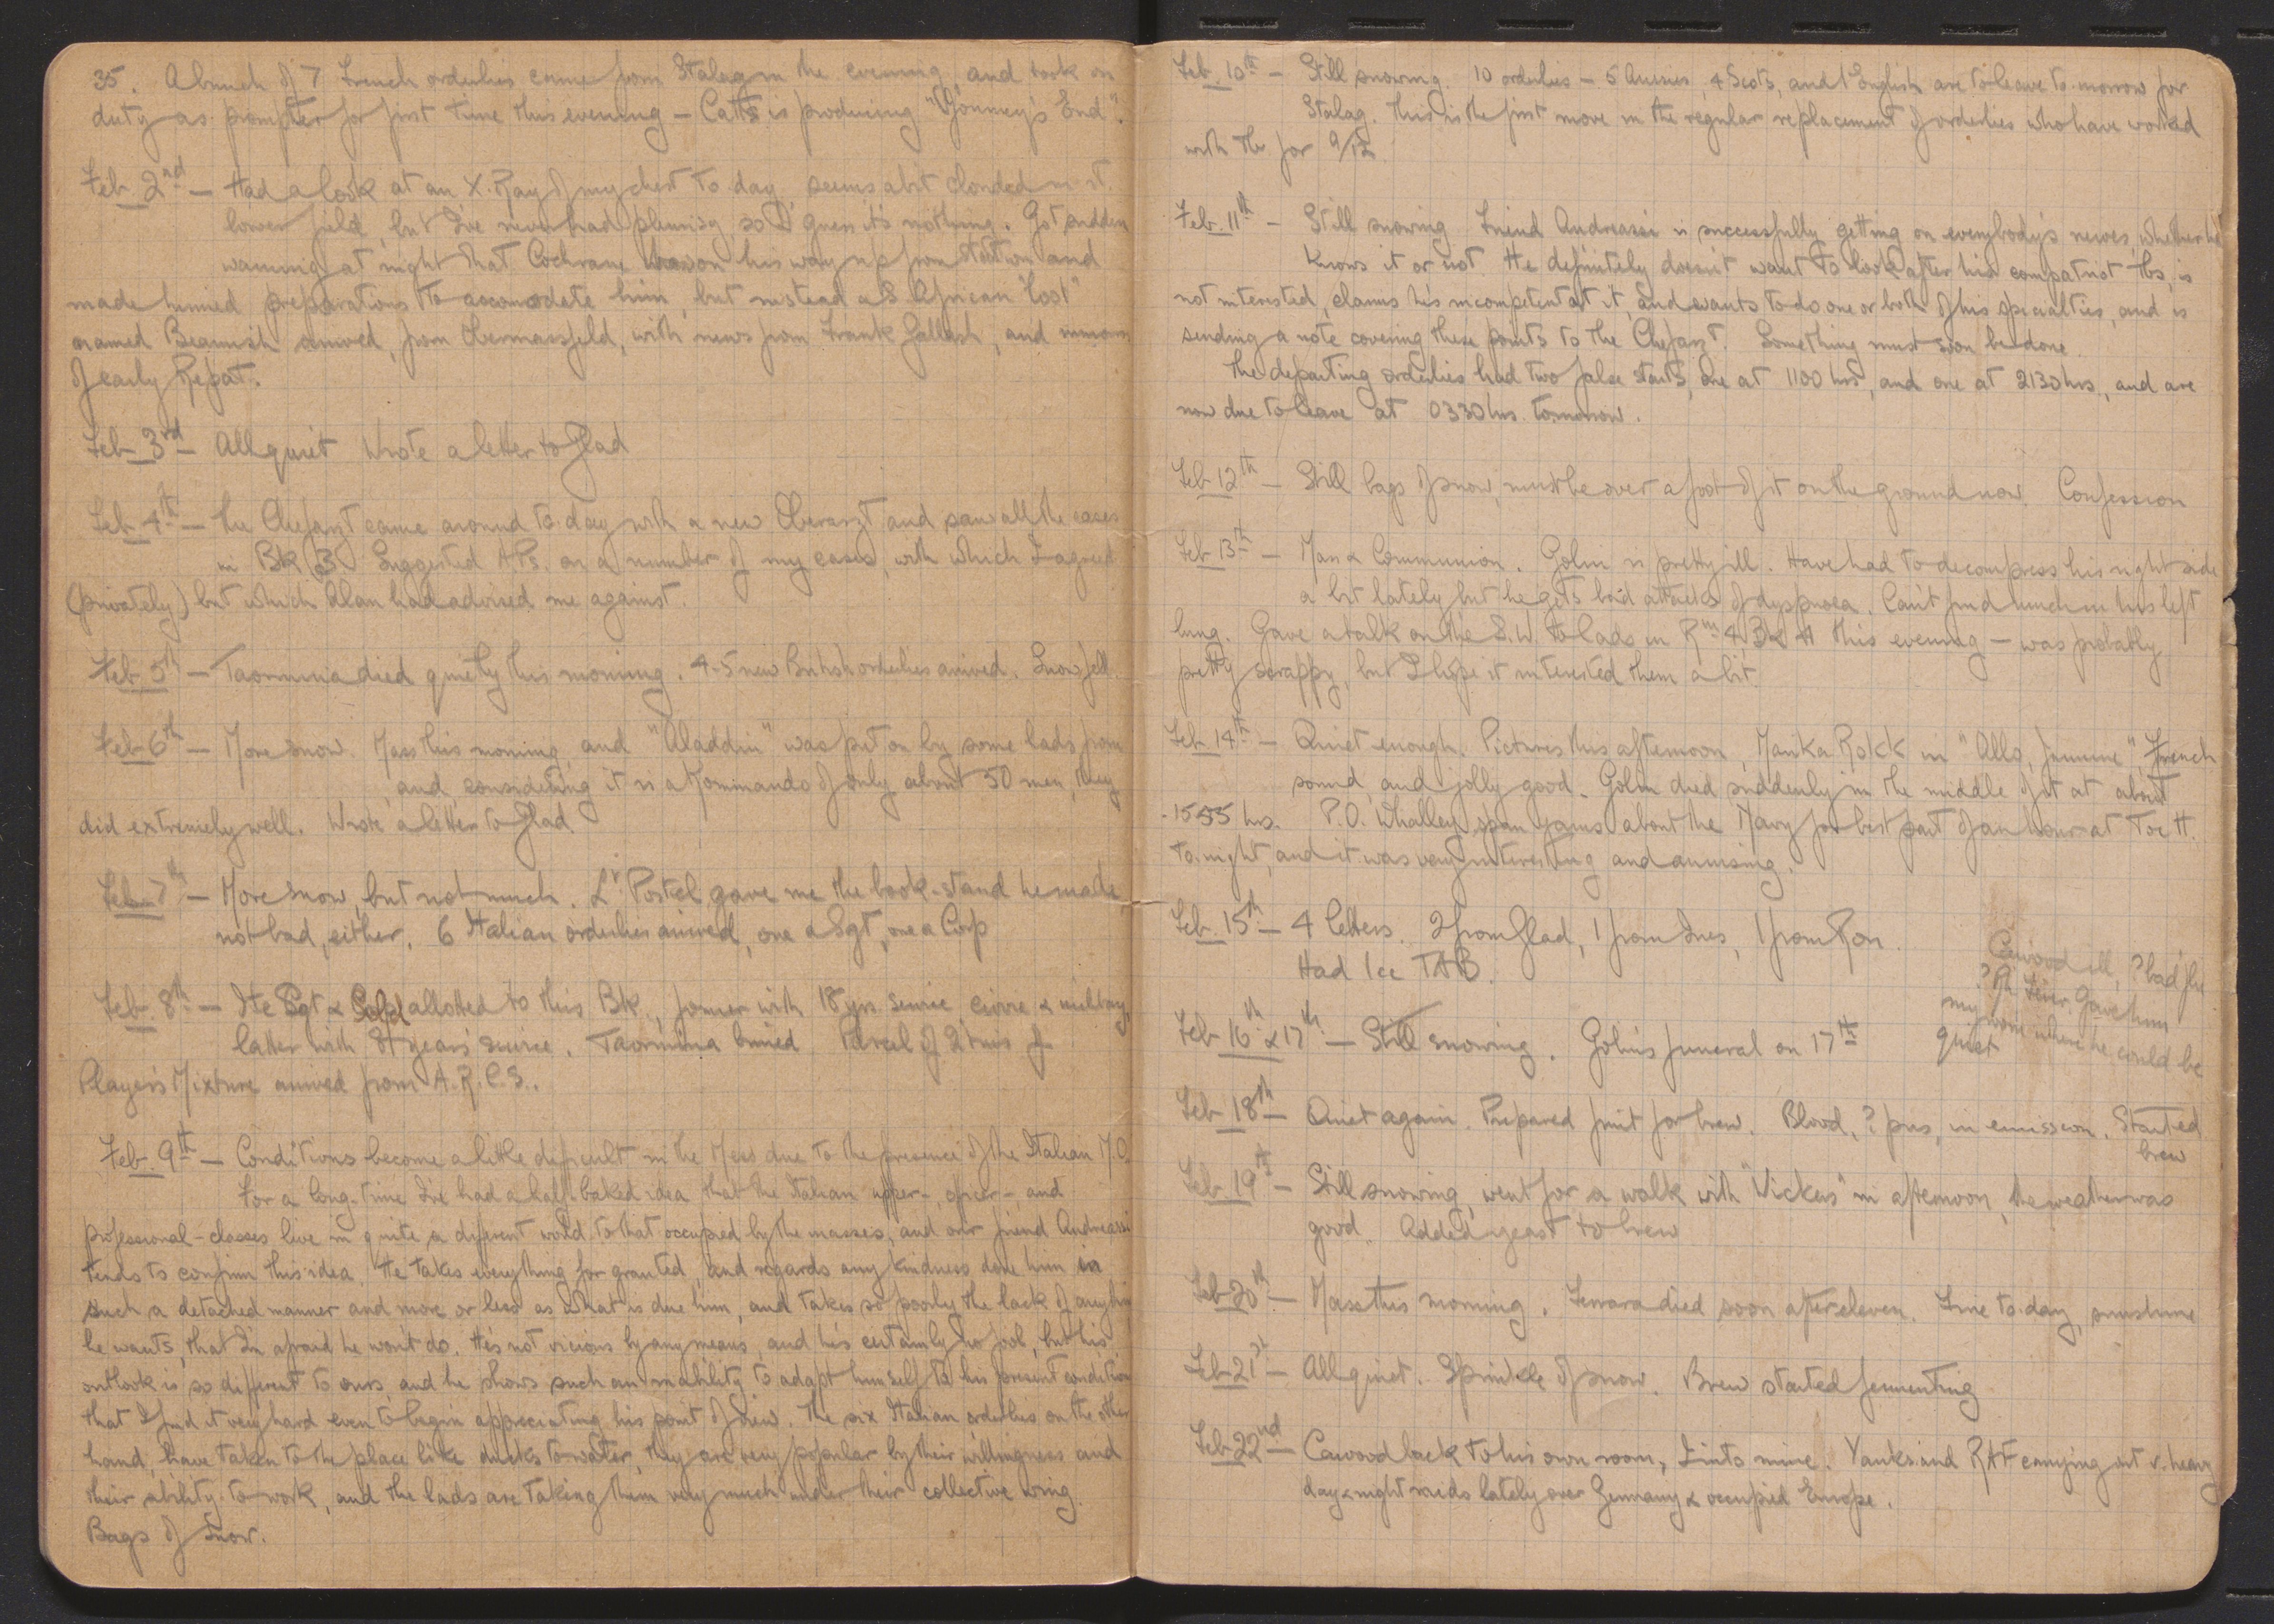 35. A bunch of 7 French orderlies came from Stalag in the evening, and took on
duty as prompter for first time this evening – Catts is producing "Journey's End".
Feb 2nd – Had a look at an X-Ray of my chest to-day, seems a bit clouded in rt.
lower field, but I've never had pleurisy, so I guess it's nothing. Got sudden
warning at night that Cochrane was on his way up from station and
made hurried preparations to accomodate him, but instead a S. African "lost"
named Beamish arrived, from Obermassfeld, with news from Frank Gallash, and rumours
of early Repat.
Feb 3rd – All quiet Wrote a letter to Glad
Feb 4th – The Chefarzt came around to-day with a new Oberarzt and saw all the cases
in Bk 3. Suggested A.Ps. on a number of my cases, with which I agreed
(privately) but which Alan had advised me against.
Feb 5th – Taormina died quietly this morning. 4-5 new British orderlies arrived. Snow fell.
Feb 6th – More snow. Mass this morning, and "Aladdin" was put on by some lads from
and considering it is a Kommando of only about 50 men, they
did extremely well. Wrote a letter to Glad
Feb 7th – More snow, but not much. Lt Postel gave me the book-stand he made
not bad, either. 6 Italian orderlies arrived, one a Sgt, one a Corp
Feb 8th – Ite Sgt & allotted to this Bk., former with 18 yrs. service, civvie & military,
latter with years' service. Taormina buried. Parcel of 2 tins of
Player's Mixture arrived from A.R.C.S..
Feb. 9th – Conditions become a little difficult in the Mess due to the presence of the Italian M.O.
For a long time I've had a half-baked idea that the Italian upper-, officer- and
professional-classes live in quite a different world to that occupied by the masses, and our friend Andreassi
tends to confirm this idea. He takes everything for granted, and regards any kindness done him in
such a detached manner and more or less as what is due him, and takes so poorly the lack of anything
he wants, that I'm afraid he won't do. He's not vicious by any means, and he's certainly no fool, but his
outlook is so different to ours, and he shows such an inability to adapt himself to his present condition
that I find it very hard even to begin appreciating his point of view. The six Italian orderlies on the other
hand, have taken to the place like ducks to water, they are very popular by their willingness and
their ability to work, and the lads are taking them very much under their collective wing.
Bags of snow.
Feb. 10th – Still snowing. 10 orderlies – 5 Aussies, 4 Scots, and 1 English are to leave to-morrow for
Stalag. This is the first move in the regular replacement of orderlies who have worked
with Tbs for 9/12
Feb. 11th – Still snowing Friend Andreassi is successfully getting on everybody's nerves, whether he
knows it or not. He definitely doesn't want to look after his compatriot Tbs, is
not interested, claims he's incompetent at it, and wants to do one or both of his specialties, and is
sending a note covering these points to the Chefarzt. Something must soon be done.
The departing orderlies had two false starts, one at 1100 hrs, and one at 2130 hrs, and are
now due to leave at 0330 hrs. tomorrow.
Feb 12th – Still bags of snow, must be over a foot of it on the ground now. Confession
Feb 13th – Mass & Communion. Golin is pretty ill. Have had to decompress his right side
a bit lately but he gets bad attacks of dyspnoea. Can't find much in his left
lung. Gave a talk on the S.W. to lads in Rm 4, Bk 4 this evening – was probably
pretty scrappy, but I hope it interested them a bit.
Feb 14th – Quiet enough. Pictures this afternoon, Marika Rökk in "Allo, Janine", French
sound, and jolly good. Golin died suddenly in the middle of it at about
1555 hrs. P.O. Whalley spun yarns about the Navy for best part of an hour at Toc H.
to-night, and it was very interesting and amusing.
Feb. 15th – 4 letters. 2 from Glad, 1 from Ines, 1 from Ron.
Had 1cc TAB.
Cawood ill, ? bad flu
? Rh. fever. Gave him
my room where he could be
quiet
Feb 16th & 17th – Still snowing. Golin's funeral on 17th
Feb 18th – Quiet again. Prepared fruit for brew. Blood, ? pus, in emission. Started
brew
Feb 19th – Still snowing, went for a walk with "Vickers" in afternoon, the weather was
good. Added yeast to brew
Feb 20th – Mass this morning. Ferrara died soon after eleven. Fine to-day, sunshine
Feb 21st – All quiet. Sprinkle of snow. Brew started fermenting
Feb 22nd – Cawood back to his own room, I into mine. Yanks and RAF carrying out v. heavy
day & night raids lately over Germany & occupied Europe.